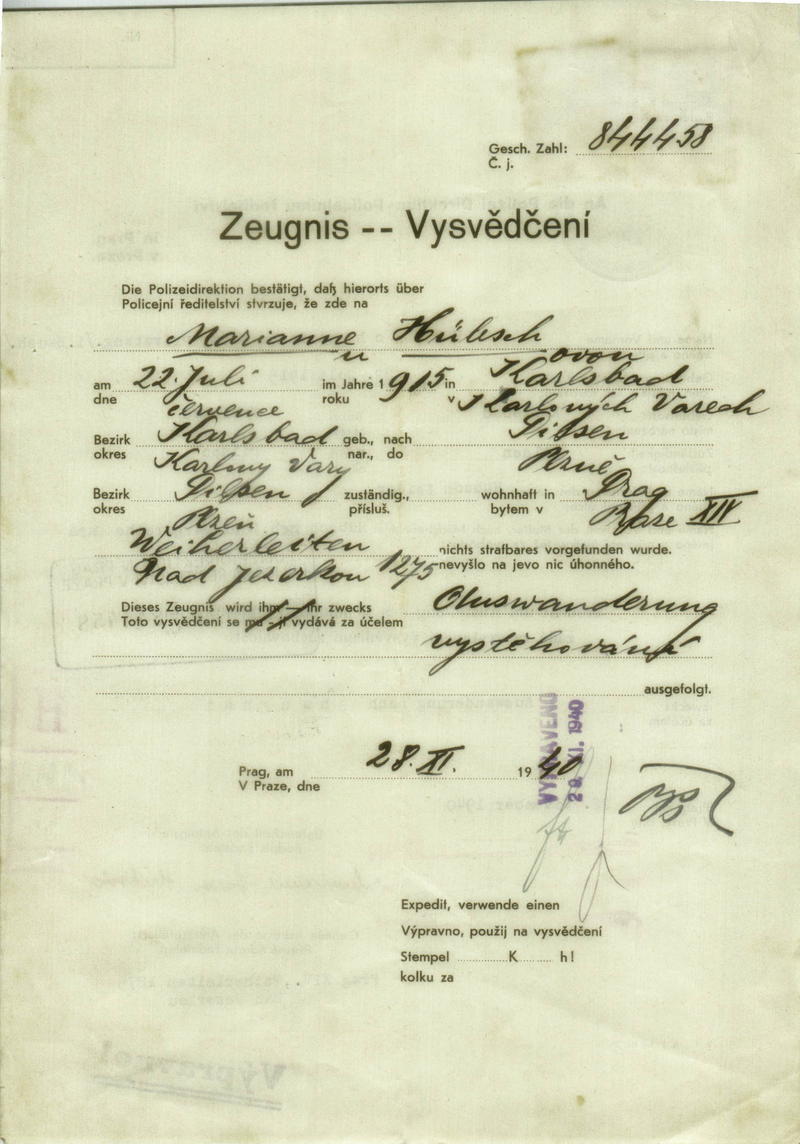 Gesch. Zahl: 844458
Č. j.
Zeugnis -- Vysvědčení
Die Polizeidirektion bestätigt, daß hierorts über
Policejní ředitelství stvrzuje, že zde na
Marianne Hübsch
u ovou
am 22. Juli im Jahre 1915 in Karlsbad
dne července roku v Karlových Varech
Bezirk Karlsbad geb., nach Pilsen
okres Karlovy Vary nar., do Plzně
Bezirk Pilsen zuständig., wohnhaft in Prag
okres Plzeň přísluš. bytem v Praze XIV
Weiherleiten nichts strafbares vorgefunden wurde.
Nad Jezerkou 1275 nevyšlo na jevo nic úhonného.
Dieses Zeugnis wird ihm — ihr zwecks Auswanderung
Toto vysvědčení se mu - jí vydává za účelem
vystěhování
ausgefolgt.
VYPRAVENO
28. XI. 1940
Prag, am 28. XI. 1940
V Praze, dne
Expedit, verwende einen
Výpravno, použij na vysvědčení
Stempel K h!
kolku za
Výpravně!